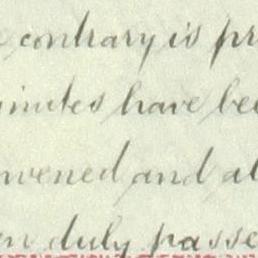 contrary is pr
inutes have bee
nvened and al
en duly passe